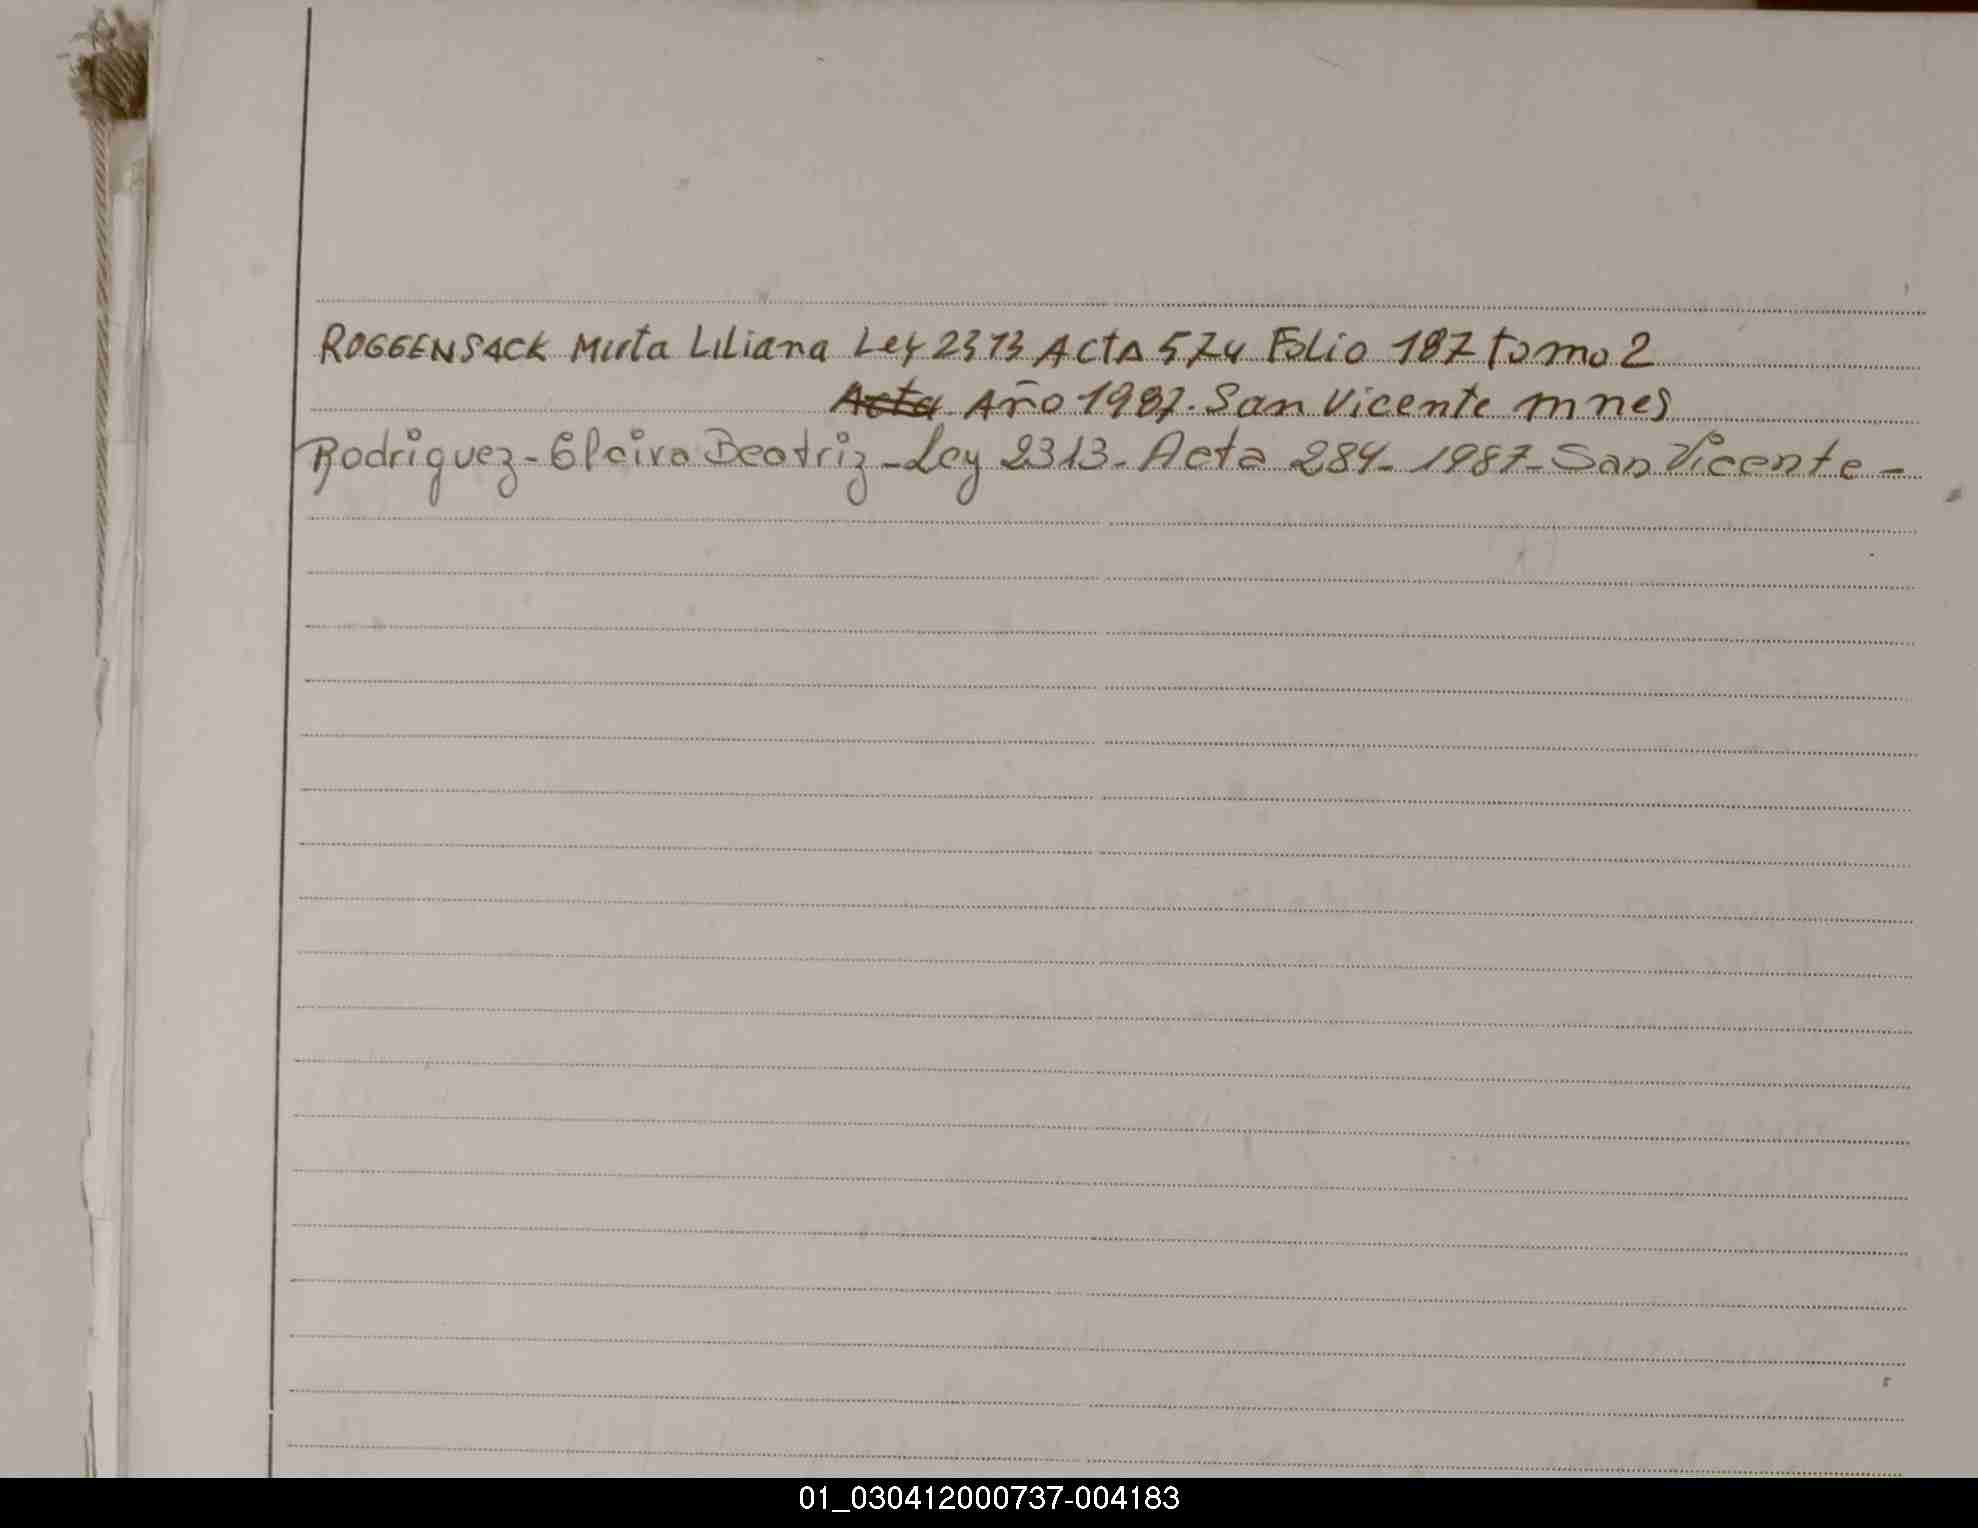 ROGGENSACK Mirta Liliana Ley 2313 Acta 574 Folio 187 tomo 2
Acta Año 1987. San Vicente mnes
Rodriguez - Elcira Beatriz - Ley 2313 - Acta 284 - 1987 - San Vicente -
01_030412000737-004183